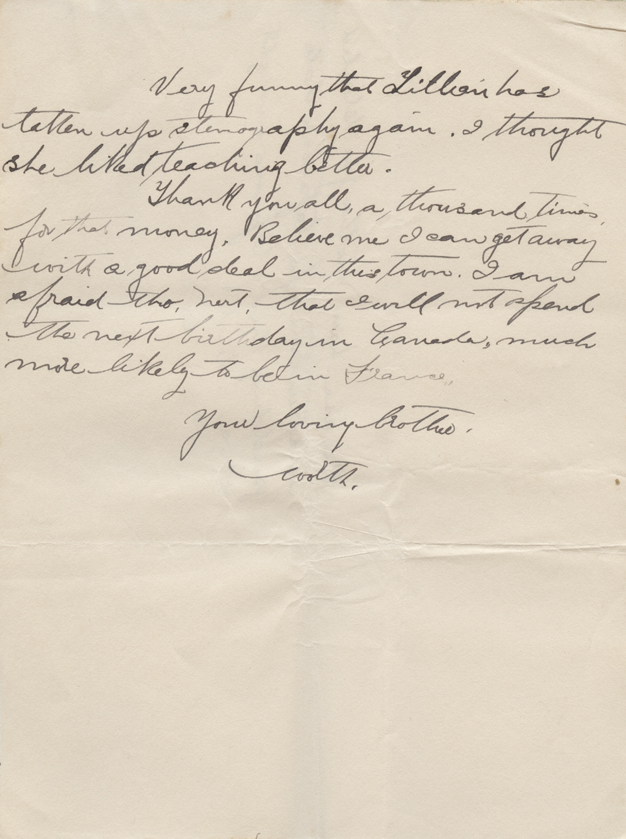 Very funny that Lillian has
taken up stenography again. I thought
she liked teaching better.
Thank you all, a thousand times,
for that money. Believe me I can get away
with a good deal in this town. I am
afraid tho, that I will not spend
the next birthday in Canada, much
more likely to be in France.
Your loving brother.
Worth.